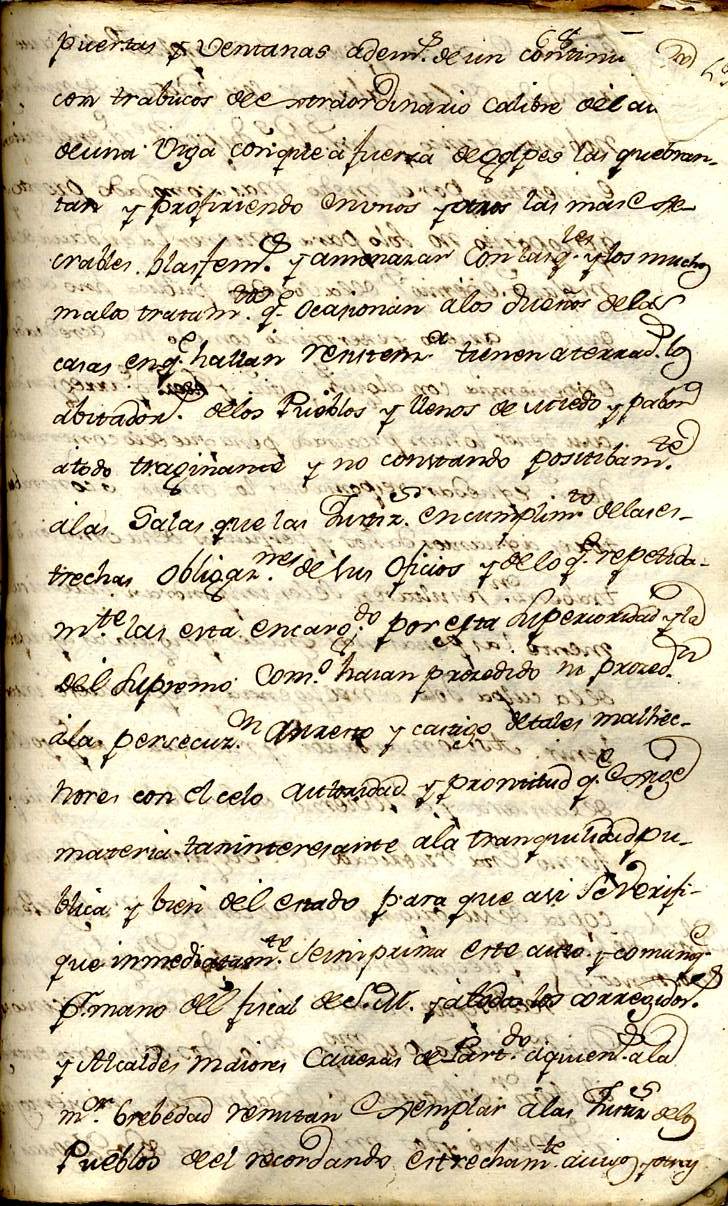 puertas y Ventanas adem.s de un continu
con trabucos de extraordinario calibre del au
de una Viga con que a fuerza de golpes las quebran-
tan y profiriendo en unos y otros las mas exe-
crables blasfem.s y amenazas con las q.e y los muchos
malos tratam.tos q.e ocasionan a los dueños de las
casas en q.e hallan resistenz.a tienen aterrad.s los
abitador.s de los Pueblos y llenos de miedo y pabor
a todo traginante y no constando positibam.te
a las Salas que las Justiz.s en cumplim.to de las es-
trechas obligaz.nes de sus oficios y de lo q.e repetida-
m.te las está encarg.do por esta Superioridad y la
del Supremo Com.o haian prozedido ni prozed.n
a la persecuz.n arresto y castigo de tales malhec-
hores con el celo autoridad y promtitud q.e exige
materia tan interesante a la tranquilidad pu-
blica y bien del estado para que asi se verifi-
que inmediatam.te se imprima este auto y comuniq.e
P.r mano del fiscal de S.M. y a todos los corregidor.s
y Alcaldes maiores Cavezas de Part.do a quien.s a la
m.or brebedad remitan exemplar a las Justiz.s de los
Pueblos de el recordando estrecham.te a unos y otros